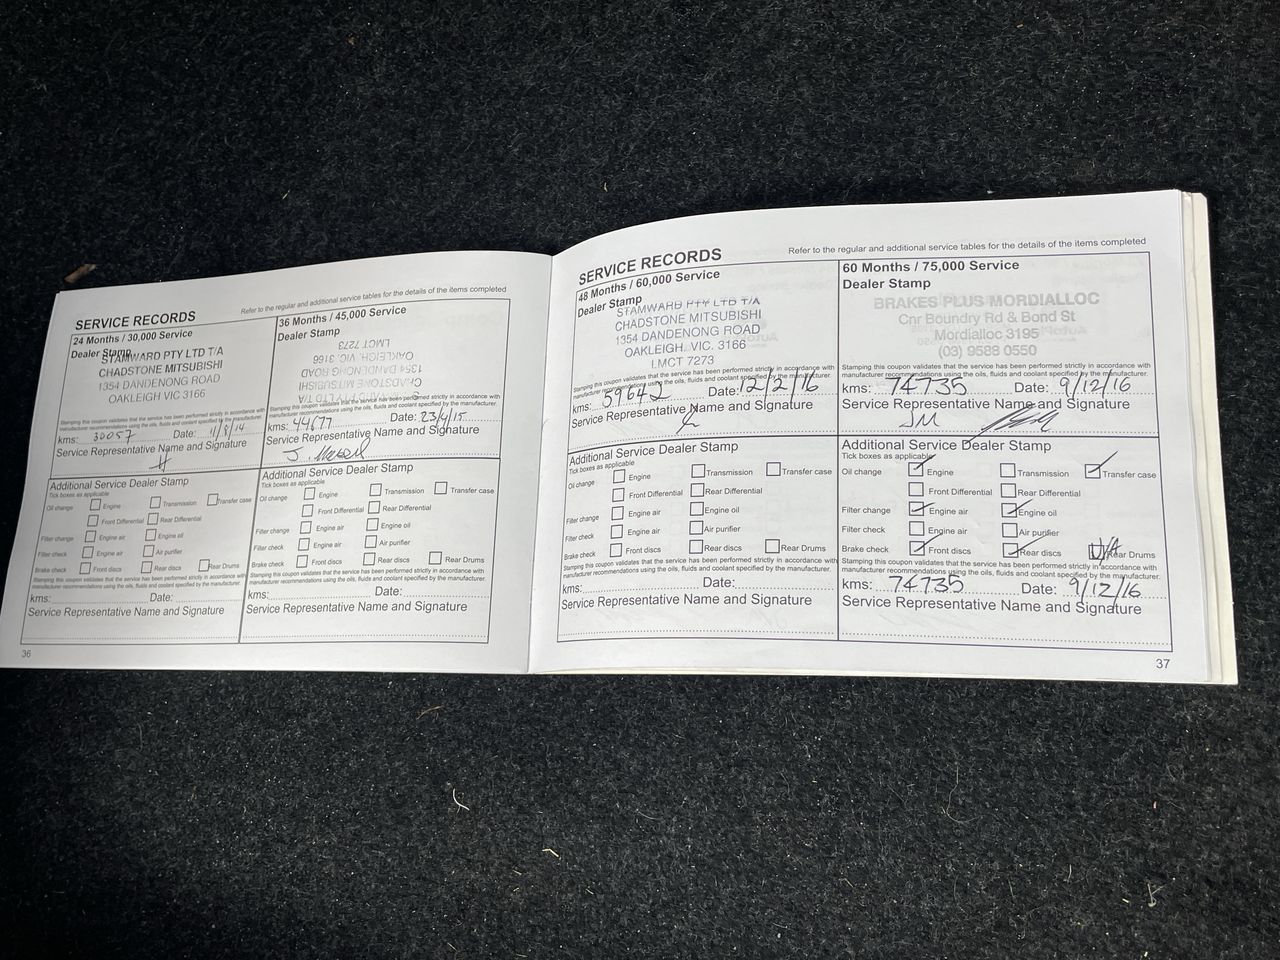 SERVICE RECORDS
Refer to the regular and additional service tables for the details of the items completed
24 Months / 30,000 Service
Dealer Stamp
STAMWARD PTY LTD T/A
CHADSTONE MITSUBISHI
1354 DANDENONG ROAD
OAKLEIGH VIC 3166
Stamping this coupon validates that the service has been performed strictly in accordance with
manufacturer recommendations using the oils, fluids and coolant specified by the manufacturer.
kms: 30057 Date: 11/8/14
Service Representative Name and Signature
Additional Service Dealer Stamp
Tick boxes as applicable
Oil change Engine Transmission Transfer case
Front Differential Rear Differential
Filter change Engine air Engine oil
Filter check Engine air Air purifier
Brake check Front discs Rear discs Rear Drums
Stamping this coupon validates that the service has been performed strictly in accordance with
manufacturer recommendations using the oils, fluids and coolant specified by the manufacturer.
kms: Date:
Service Representative Name and Signature
36
36 Months / 45,000 Service
Dealer Stamp
LMCT 7273
OAKLEIGH, VIC. 3166
1354 DANDENONG ROAD
CHADSTONE MITSUBISHI
STAMWARD PTY LTD T/A
Stamping this coupon validates that the service has been performed strictly in accordance with
manufacturer recommendations using the oils, fluids and coolant specified by the manufacturer.
kms: 44677 Date: 23/4/15
Service Representative Name and Signature
Additional Service Dealer Stamp
Tick boxes as applicable
Oil change Engine Transmission Transfer case
Front Differential Rear Differential
Filter change Engine air Engine oil
Filter check Engine air Air purifier
Brake check Front discs Rear discs Rear Drums
Stamping this coupon validates that the service has been performed strictly in accordance with
manufacturer recommendations using the oils, fluids and coolant specified by the manufacturer.
kms: Date:
Service Representative Name and Signature
SERVICE RECORDS
Refer to the regular and additional service tables for the details of the items completed
48 Months / 60,000 Service
Dealer Stamp
STAMWARD PTY LTD T/A
CHADSTONE MITSUBISHI
1354 DANDENONG ROAD
OAKLEIGH, VIC. 3166
LMCT 7273
Stamping this coupon validates that the service has been performed strictly in accordance with
manufacturer recommendations using the oils, fluids and coolant specified by the manufacturer.
kms: 59642 Date: 12/2/16
Service Representative Name and Signature
Additional Service Dealer Stamp
Tick boxes as applicable
Oil change Engine Transmission Transfer case
Front Differential Rear Differential
Filter change Engine air Engine oil
Filter check Engine air Air purifier
Brake check Front discs Rear discs Rear Drums
Stamping this coupon validates that the service has been performed strictly in accordance with
manufacturer recommendations using the oils, fluids and coolant specified by the manufacturer.
kms: Date:
Service Representative Name and Signature
60 Months / 75,000 Service
Dealer Stamp
BRAKES PLUS MORDIALLOC
Cnr Boundry Rd & Bond St
Mordialloc 3195
(03) 9588 0550
Stamping this coupon validates that the service has been performed strictly in accordance with
manufacturer recommendations using the oils, fluids and coolant specified by the manufacturer.
kms: 74735 Date: 9/12/16
Service Representative Name and Signature
JM
Additional Service Dealer Stamp
Tick boxes as applicable
Oil change Engine Transmission Transfer case
Front Differential Rear Differential
Filter change Engine air Engine oil
Filter check Engine air Air purifier
Brake check Front discs Rear discs N/A Rear Drums
Stamping this coupon validates that the service has been performed strictly in accordance with
manufacturer recommendations using the oils, fluids and coolant specified by the manufacturer.
kms: 74735 Date: 9/12/16
Service Representative Name and Signature
37